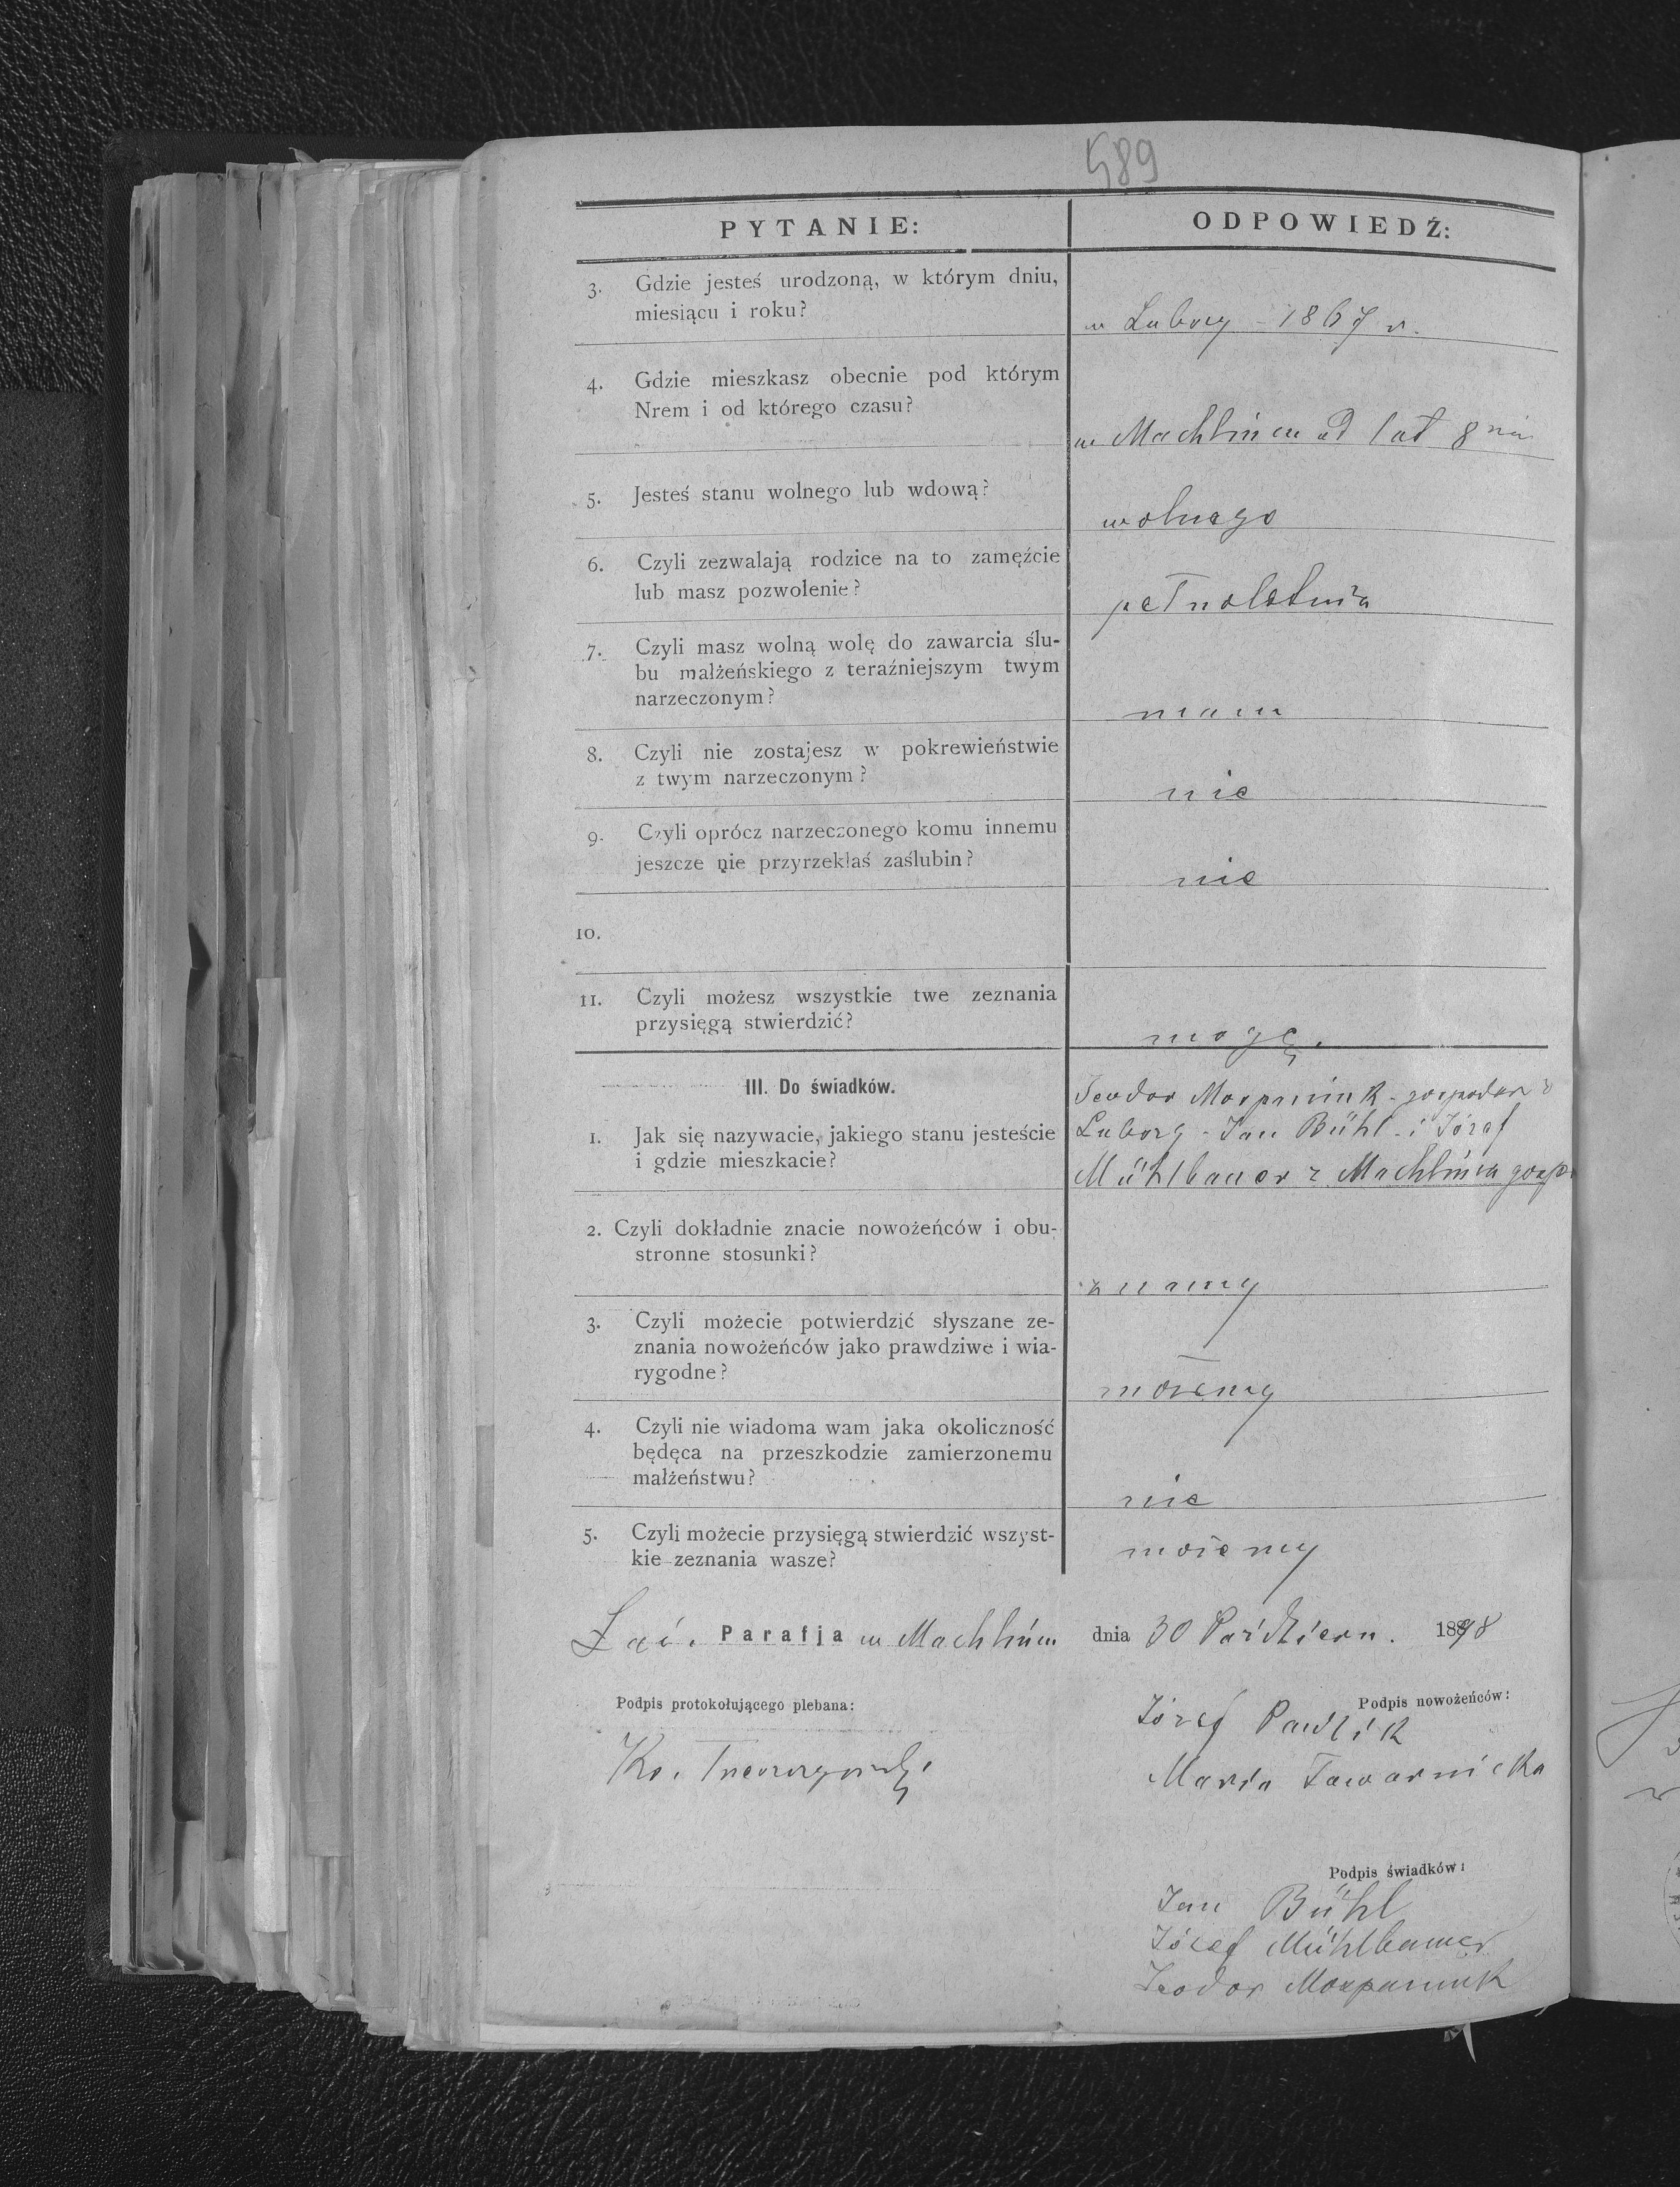 589
PYTANIE:
ODPOWIEDŹ:
3. Gdzie jesteś urodzoną, w którym dniu,
miesiącu i roku?
w Lubszy - 1867 r.
4. Gdzie mieszkasz obecnie pod którym
Nrem i od którego czasu?
w Machlińcu od lat 8
5. Jesteś stanu wolnego lub wdową?
wolnego
6. Czyli zezwalają rodzice na to zamęźcie
lub masz pozwolenie?
pełnoletnia
7. Czyli masz wolną wolę do zawarcia ślu-
bu małżeńskiego z teraźniejszym twym
narzeczonym?
mam
8. Czyli nie zostajesz w pokrewieństwie
z twym narzeczonym?
nie
9. Czyli oprócz narzeczonego komu innemu
jeszcze nie przyrzekłaś zaślubin?
nie
10.
11. Czyli możesz wszystkie twe zeznania
przysięgą stwierdzić?
mogę.
III. Do świadków.
1. Jak się nazywacie, jakiego stanu jesteście
i gdzie mieszkacie?
Teodor - gospodarz
Jan Bühl - i Józef
Mühlbauer z Machlińca gosp
2. Czyli dokładnie znacie nowożeńców i obu-
stronne stosunki?
znamy
3. Czyli możecie potwierdzić słyszane ze-
znania nowożeńców jako prawdziwe i wia-
rygodne?
możemy
4. Czyli nie wiadoma wam jaka okoliczność
będęca na przeszkodzie zamierzonemu
małżeństwu?
nie
5. Czyli możecie przysięgą stwierdzić wszyst-
kie zeznania wasze?
możemy
Łać. Parafja w Machlińcu dnia 30 Paździer. 1898
Podpis protokołującego plebana:
Podpis nowożeńców:
Józef Pawlik
Ks.
Maria Tawarnicka
Podpis świadków:
Jan Bühl
Józef Mühlbauer
Teodor